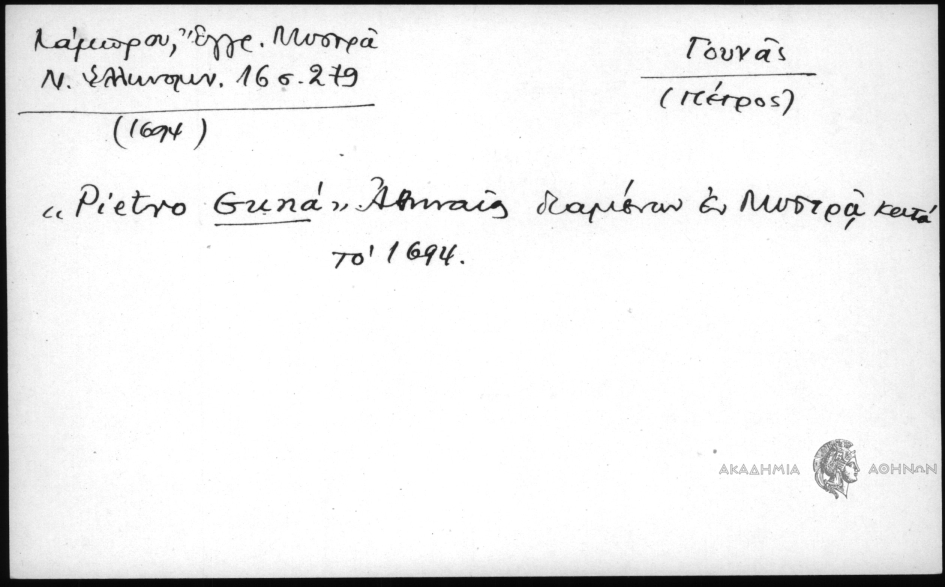 Λάμπρου, Ἔγγρ. Μυστρᾶ
Ν. Ἑλληνομν. 16 σ. 279
(1694)
Γουνᾶς
(Πέτρος)
«Pietro Guná» Ἀθηναῖος διαμένων ἐν Μυστρᾷ κατά
τό 1694.
ΑΚΑΔΗΜΙΑ ΑΘΗΝΩΝ